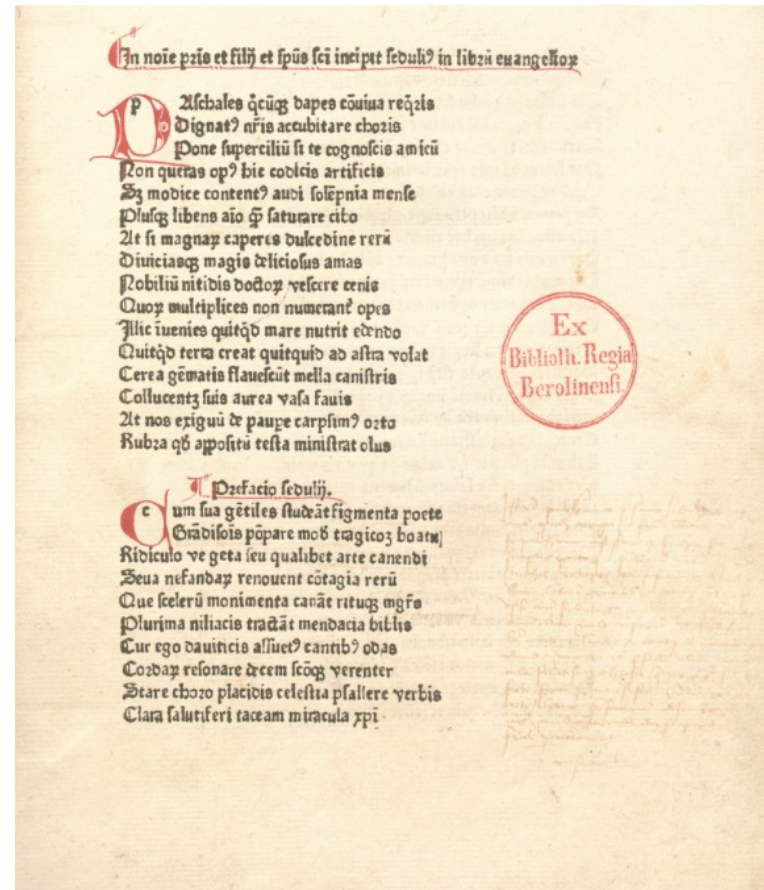 In noīe pr̄is et filij et spūs sc̄i incipit seduliꝰ in librū euangelioꝝ
PAschales q̄cūqꝫ dapes cōuiua reqͥris
Dignatꝰ nr̄is accubitare choris
Pone superciliū si te cognoscis amicū
Non queras opꝰ hic codicis artificis
Sꝫ modice contentꝰ audi solēpnia mense
Plusqꝫ libens aīo qꝫ̄ saturare cibo
At si magnaꝝ caperis dulcedine rerū
Diuiciasqꝫ magis deliciosus amas
Nobiliū nitidis doctoꝝ vescere cenis
Quoꝝ multiplices non numerant᷑ opes
Illic īuenies quitqͥd mare nutrit edendo
Quitqͥd terra creat quitquid ad astra volat
Cerea gēmatis flauescūt mella canistris
Collucentqꝫ suis aurea vasa fauis
At nos exiguū de paupe carpsimꝰ orto
Rubra qđ appositū testa ministrat olus
Ex
Biblioth. Regia
Berolinensi.
Prefacio sedulij.
Cum sua gētiles studeāt figmenta poete
Grādisois pōpare mođ tragicoqꝫ boatu
Ridiculo ve geta seu qualibet arte canendi
Seua nefandaꝝ renouent cōtagia rerū
Que scelerū monimenta canāt rituqꝫ mgr̄s
Plurima niliacis tradāt mendacia biblis
Cur ego dauiticis assuetꝰ cantibꝰ odas
Cordaꝝ resonare decem scōqꝫ verenter
Stare choro placidis celestia psallere verbis
Clara salutiferi taceam miracula xp̄i